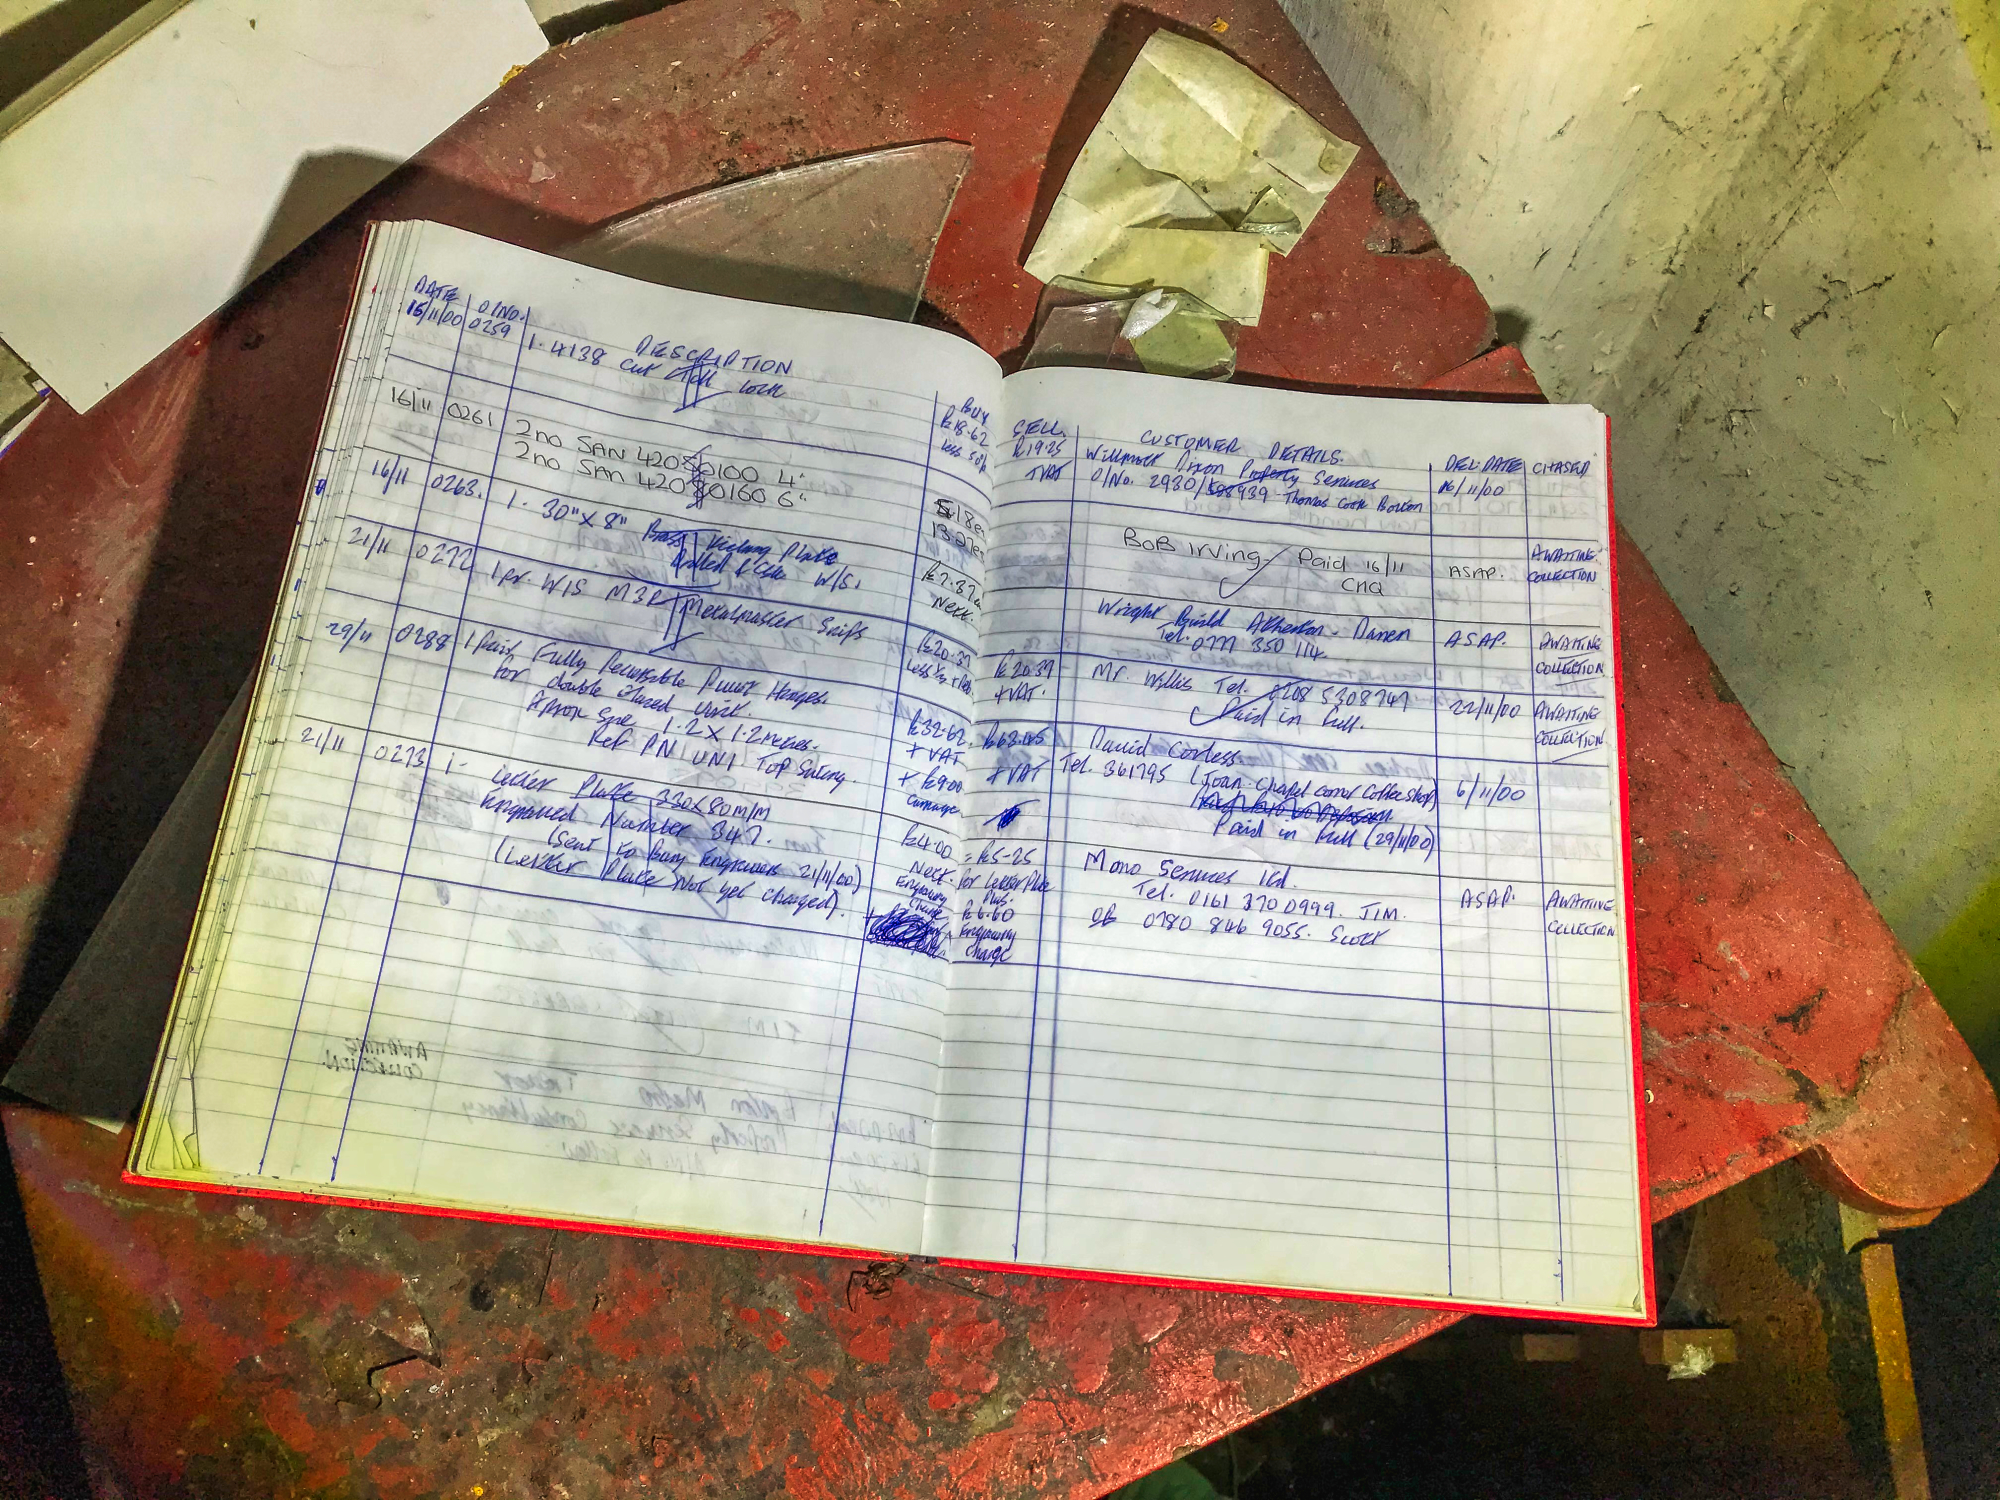 DATE O/NO. DESCRIPTION BUY
15/11/00 0259 1. 4138 Cut Lock £18.62
Less 50%
16/11 0261 2no SAN 42080100 4" 18ea
2no SAA 42080160 6" 13.27ea
16/11 0263. 1. 30" x 8" Brass Kicking Plate £7.87ea
Drilled & Csk W/S. Nett.
21/11 0272 1pr. WIS M3R Metalmaster Snips £20.39
29/11 0288 1 Pair Fully Reversible Pivot Hinges. £32.62
for double Glazed Unit + VAT
Aprox Size 1.2 x 1.2 metres. + £9.00
Ref PN UNI TOP Swing. Carriage
21/11 0273 1- Letter Plate 330x80m/m £4.00
Engraved Number 347. Nett.
(Sent to Bury Engravers 21/11/00) Engraving
(Letter Plate Not yet charged). Charge
SELL CUSTOMER DETAILS. DEL:DATE CHASED
£19.25 Willmott Dixon Property Services 16/11/00
+VAT O/No. 2930/ 8939 - Thomas Cook Bolton
BOB Irving Paid 16/11 ASAP. AWAITING
CHQ COLLECTION
Wright Build Atherton - Darren ASAP. AWAITING
Tel. 0777 350 114. COLLECTION
£20.39 Mr. Willis Tel. 0208 5308747 22/11/00 AWAITING
+VAT. Paid in full. COLLECTION
David Corless. 6/11/00
+VAT Tel. 361795 (Joan - Chapel corner Coffee Shop)
Paid in full (29/11/00)
= £5-25 Mono Services Ltd. ASAP. AWAITING
for Letter Plate Tel. 0161 370 0999. JIM. COLLECTION
Plus. OR 0780 846 9055. Scott
£6.60
Engraving
Charge